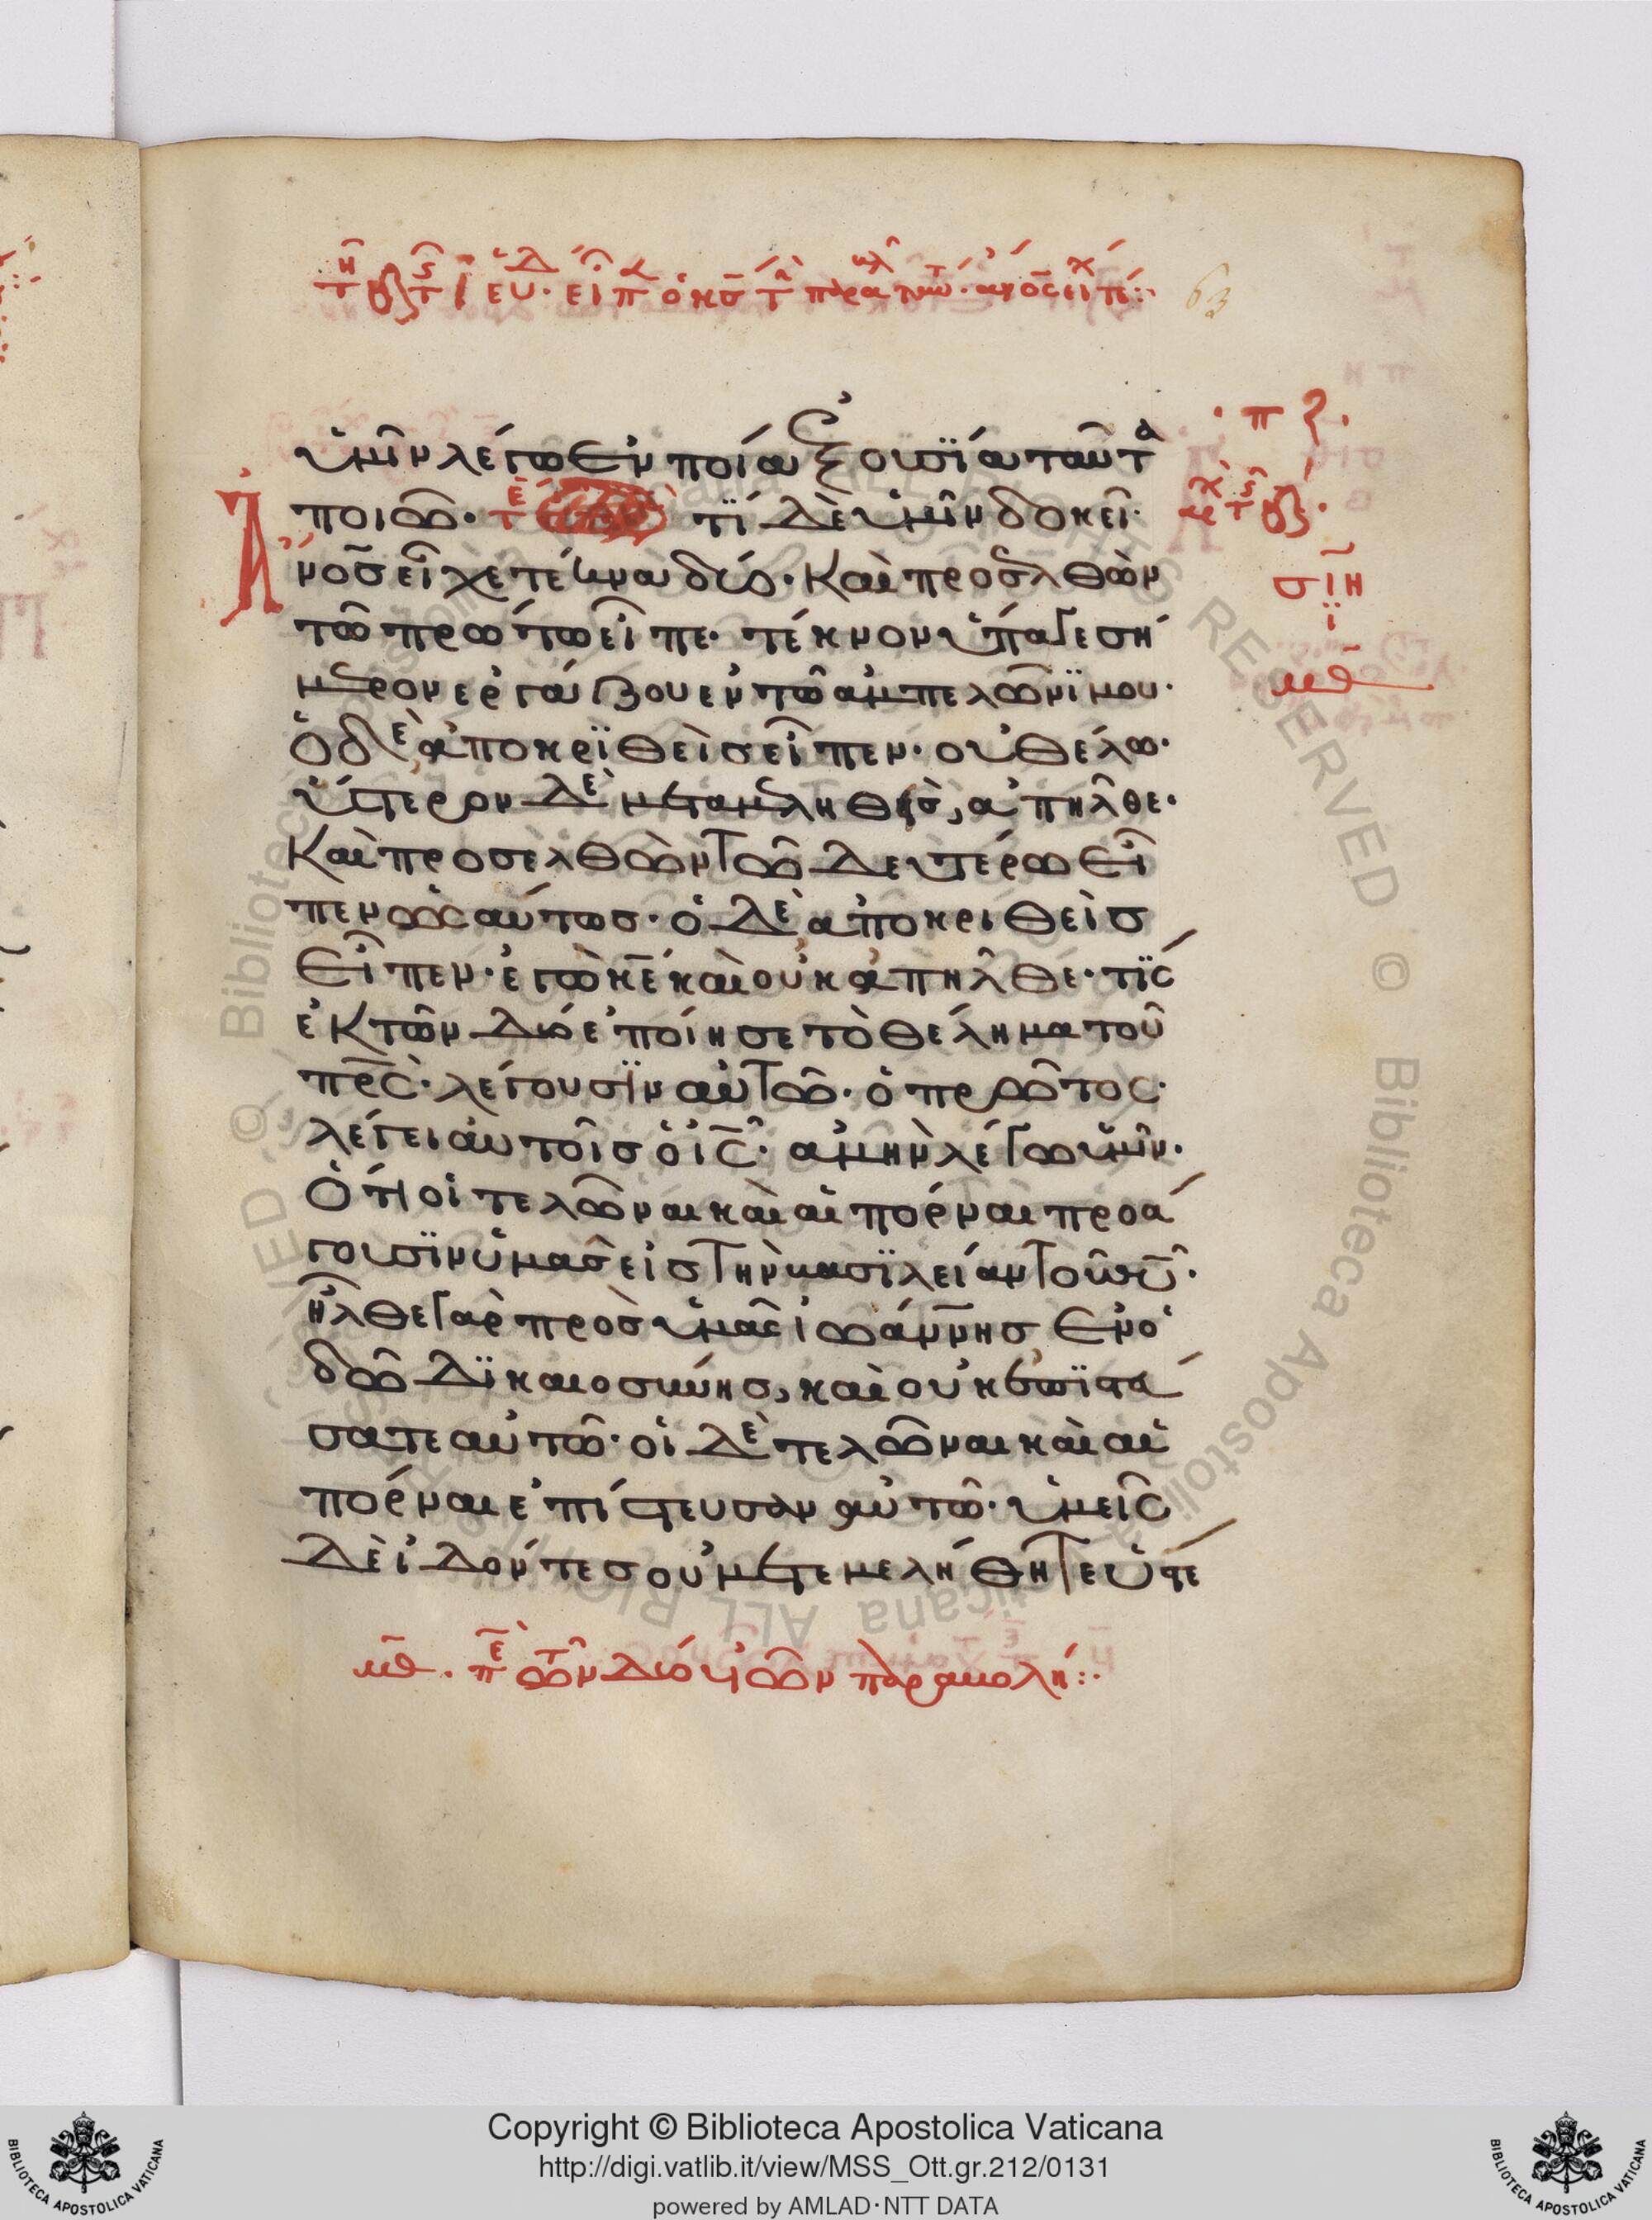 ὑμῖν λέγω ἐν ποία ἐξουσΐα ταῦτα
ποιῶ· τΐ δὲ ὑμῖν δοκεῖ·
Ἄνο̅σ εἶχε τέκνα δύο· Καὶ προσελθὼν
τῶ πρώτω εἶπε· τέκνον ὕπαγε σή
μερον ἐργάζου ἐν τῶ ἀμπελῶνϊ μου·
ὁ δὲ ἀποκρϊθεὶσ εἶπεν· οὐ θέλω·
ὕστερον δὲ μεταμεληθεὶσ, ἀπῆλθε·
Καὶ προσελθὼν τῶ δευτέρω εἶ
πεν ὡσαύτωσ· ὁ δὲ ἀποκριθεὶσ
εἶπεν· ἐγὼ κε̅ καὶ οὐκ ἀπῆλθε· τΐσ
ἐκ τῶν δύο ἐποίησε τὸ θέλημα τοῦ
πρ̅σ· λέγουσϊν αὐτῶ· ὁ πρῶτος·
λέγει αὐτοῖσ ὁ ι̅σ· ἀμὴν λέγω ὑμῖν·
Ὅτι οἱ τελῶναι καὶ αἱ πόρναι προά
γουσϊν ὑμᾶσ εἰσ τὴν βασϊλείαν τοῦ θυ̅·
ἦλθε γὰρ πρὸσ ὑμᾶσ ἰωάννησ ἐν ὁ
δῶ δϊκαιοσύνησ, καὶ οὐκ ἐπϊστεύ
σατε αὐτῶ· οἱ δὲ τελῶναι καὶ αἱ
πόρναι ἐπίστευσαν αὐτῶ· ὑμεῖσ
δὲ ἰδόντεσ οὐ μετεμελήθητε ὕστε
σιη
ι
μθ
μθ· πε τῶν δύο υἱῶν παραβολή:·
63
Copyright © Biblioteca Apostolica Vaticana
http://digi.vatlib.it/view/MSS_Ott.gr.212/0131
powered by AMLAD·NTT DATA
BIBLIOTECA APOSTOLICA VATICANA
BIBLIOTECA APOSTOLICA VATICANA